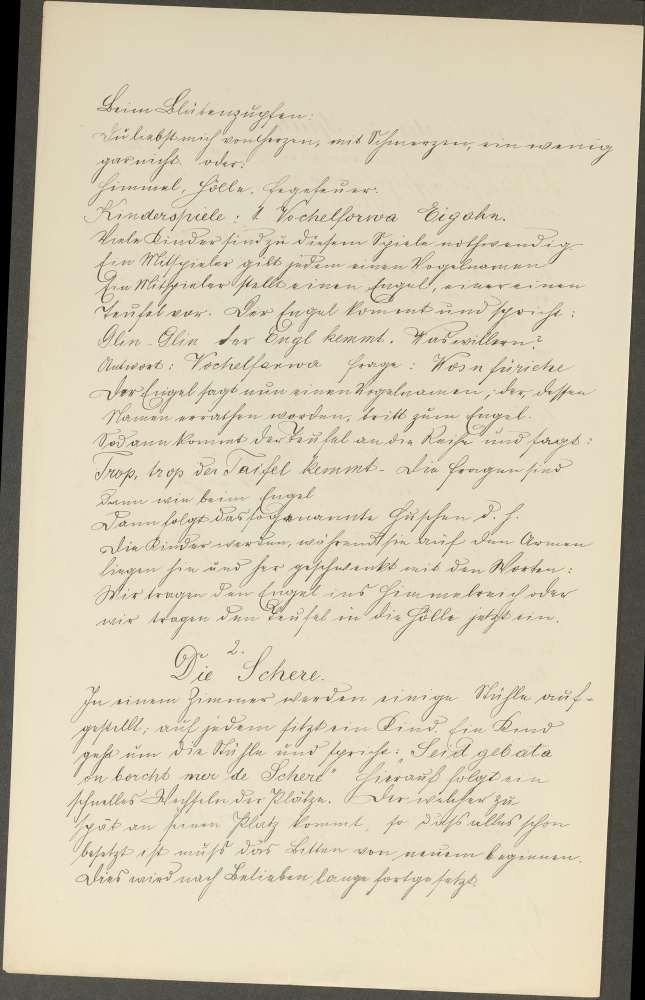 Beim Blütenzupfen:
Du liebst mich von Herzen, mit Schmerzen, ein wenig
gar nicht oder:
Himmel, Hölle, Fegefeuer.
Kinderspiele: 1. Vochelforwa Eigohn.
Viele Kinder sind zu diesem Spiele nothwendig.
Ein Mitspieler gibt jedem einen Vogelnamen
Ein Mitspieler stellt einen Engel, einer einen
Teufel vor. Der Engel kommt und spricht:
Glin-Glin der Engl kemmt. Was willern?
Antwort: Vochelfarwa Frage: Wosn füriche
Der Engel sagt nun einen Vogelnamen; der, dessen
Namen errathen worden, tritt zum Engel.
Sodann kommt der Teufel an die Reihe und sagt:
Trop, trop der Taifel kemmt- Die Fragen sind
dann wie beim Engel
Dann folgt das sogenannte Hutschen d. h.
Die Kinder werden, während sie auf den Armen
liegen hin und her geschwenkt mit den Worten:
Wir tragen den Engel ins Himmelreich oder
wir tragen den Teufel in die Hölle jetzt ein.
2.
Die Schere.
In einem Zimmer werden einige Stühle auf-
gestellt; auf jedem sitzt ein Kind. Ein Kind
geht um die Stühle und spricht: "Seid gebata
on borcht mer de Schere" Hierauf folgt ein
schnelles Wechseln der Plätze. Der welcher zu
spät an seinen Platz kommt, so dass alles schon
besetzt ist muß das Bitten von neuem beginnen.
Dies wird nach Belieben lange fortgesetzt.